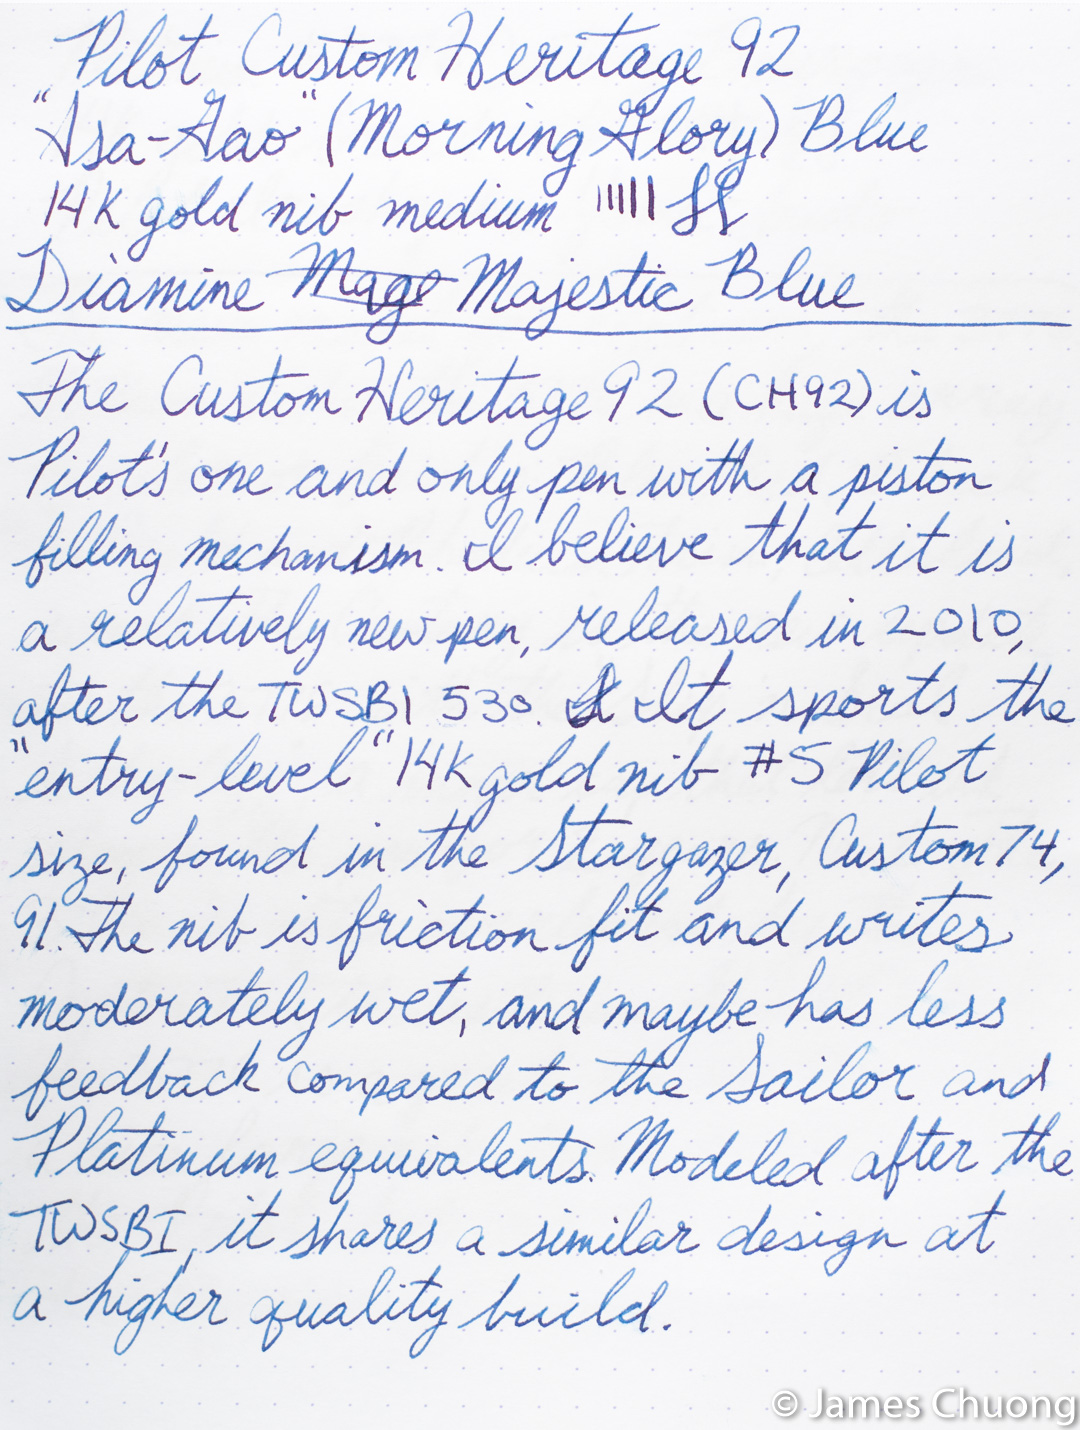 Pilot Custom Heritage 92
"Asa-Gao" (Morning Glory) Blue
14K gold nib medium
Diamine Mage Majestic Blue
The Custom Heritage 92 (CH92) is
Pilot's one and only pen with a piston
filling mechanism. I believe that it is
a relatively new pen, released in 2010,
after the TWSBI 530. It sports the
"entry-level" 14K gold nib #5 Pilot
size, found in the Stargazer, Custom 74,
91. The nib is friction fit and writes
moderately wet, and maybe has less
feedback compared to the Sailor and
Platinum equivalents. Modeled after the
TWSBI, it shares a similar design at
a higher quality build.
© James Chuong